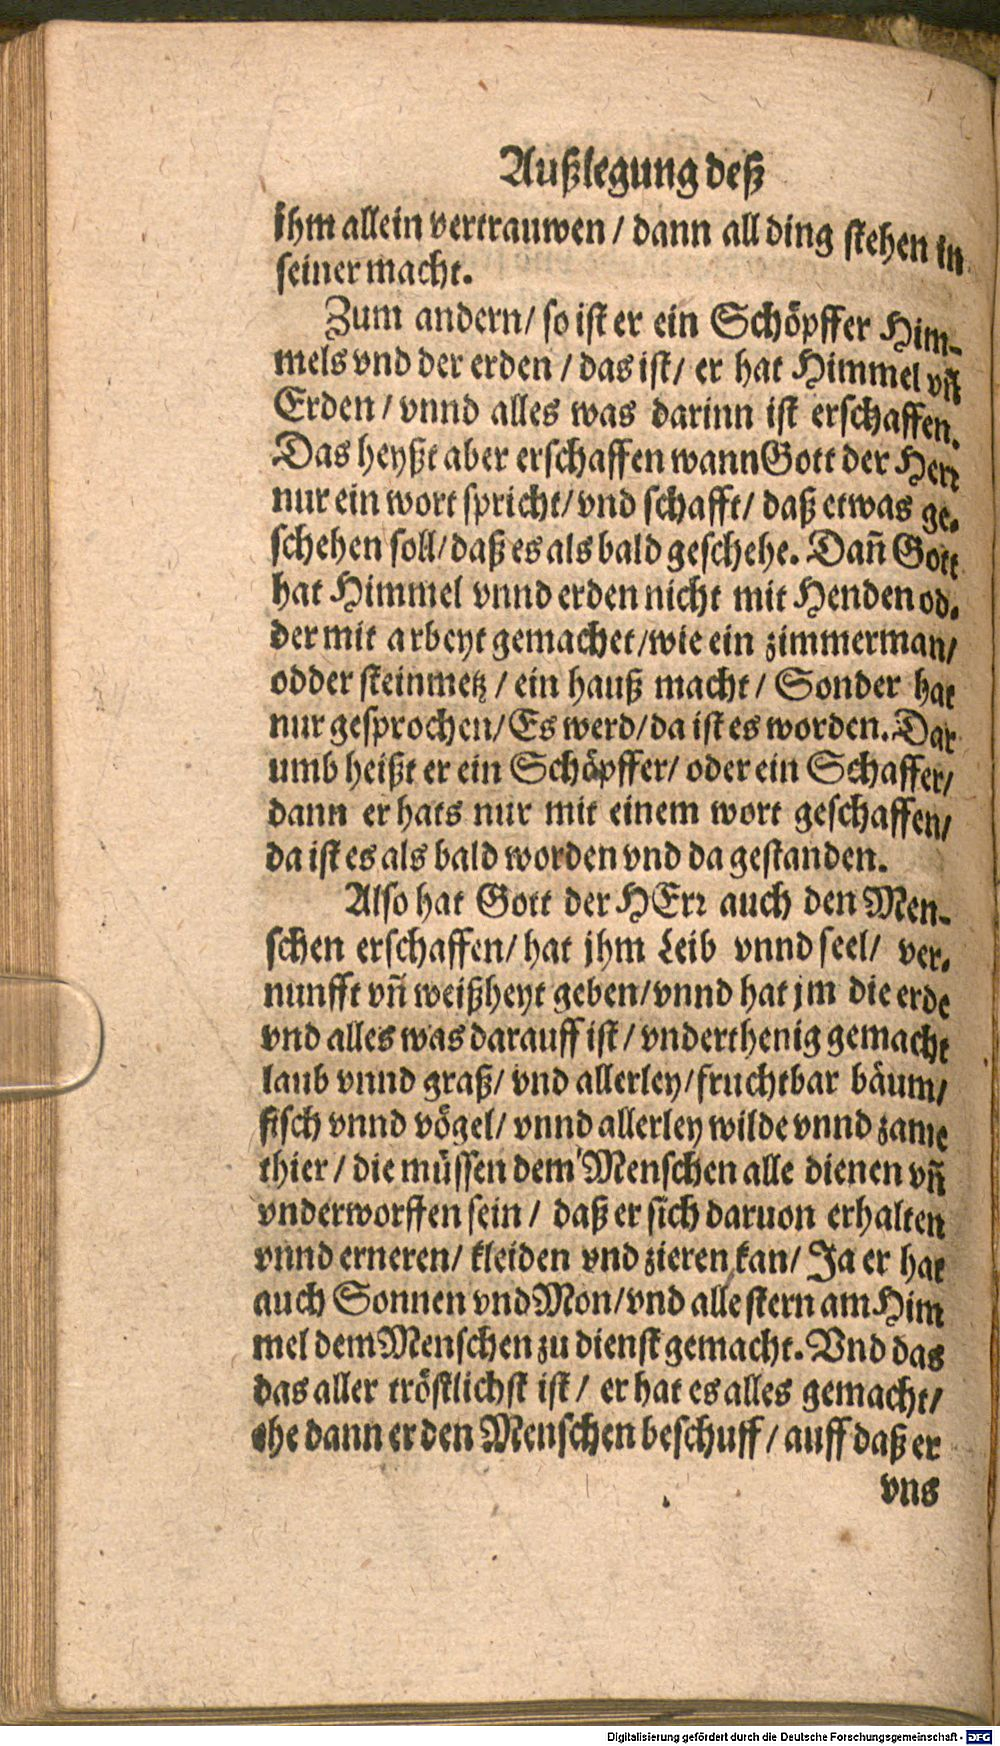 Außlegung deß
ihm allein vertrauwen / dann all ding stehen in
seiner macht.
Zum andern/ so ist er ein Schöpffer Him-
mels vnd der erden / das ist/ er hat Himmel vñ
Erden / vnnd alles was darinn ist erschaffen.
Das heyßt aber erschaffen wann Gott der Herr
nur ein wort spricht/ vnd schafft/ daß etwas ge-
schehen soll/ daß es als bald geschehe. Dañ Gott
hat Himmel vnnd erden nicht mit Henden od-
der mit arbeyt gemachet/wie ein zimmerman/
odder steinmetz / ein hauß macht/ Sonder hat
nur gesprochen/ Es werd/ da ist es worden. Dar
umb heißt er ein Schöpffer/ oder ein Schaffer/
dann er hats nur mit einem wort geschaffen/
da ist es als bald worden vnd da gestanden.
Also hat Gott der HErr auch den Men-
schen erschaffen/ hat jhm Leib vnnd seel/ ver-
nunfft vñ weißheyt geben/ vnnd hat jm die erde
vnd alles was darauff ist/ vnderthenig gemacht
laub vnnd graß/ vnd allerley/ fruchtbar bäum/
fisch vnnd vögel/ vnnd allerley wilde vnnd zame
thier / die müssen dem Menschen alle dienen vñ
vnderworffen sein / daß er sich daruon erhalten
vnnd erneren/ kleiden vnd zieren kan/ Ja er hat
auch Sonnen vnd Mon/ vnd alle stern am Him
mel dem Menschen zu dienst gemacht. Vnd das
das aller tröstlichst ist / er hat es alles gemacht/
ehe dann er den Menschen beschuff / auff daß er
vns
Digitalisierung gefördert durch die Deutsche Forschungsgemeinschaft - DFG